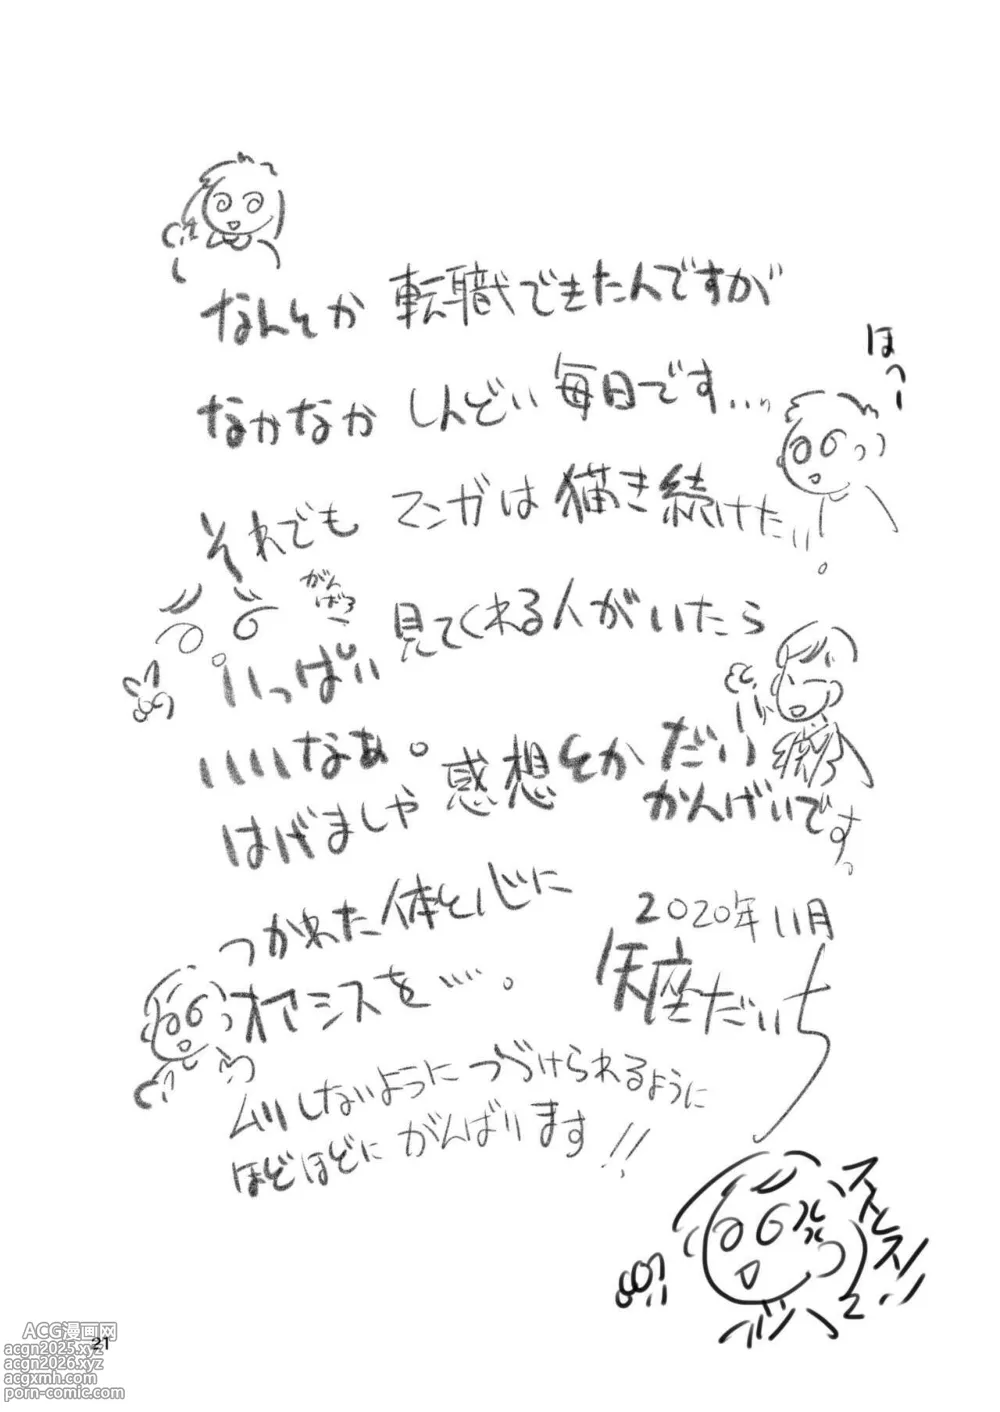 なんとか 転職できたんですが
ほっー
なかなか しんどい 毎日です...
それでも マンガは 描き続けたい
がん
ばろー
見てくれる人がいたら
いっぱい
いいなぁ。
はげましや 感想とか だい
かんげいです。
つかれた 体と心に
オアシスを....。
2020年11月
矢座だいち
ムリしないように つづけられるように
ほどほどに がんばります!!
21
ACG漫画网
acgn2025.xyz
acgn2026.xyz
acgxmh.com
porn-comic.com